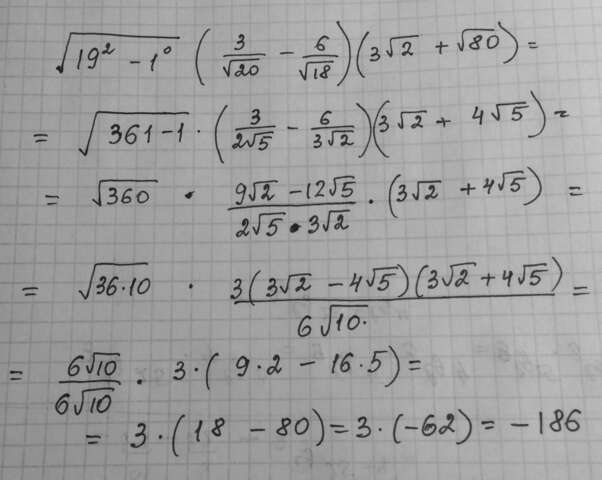 √(19² − 1⁰) (3/√20 − 6/√18)(3√2 + √80) =
= √(361−1) · (3/(2√5) − 6/(3√2))(3√2 + 4√5) =
= √360 · (9√2 − 12√5)/(2√5 · 3√2) · (3√2 + 4√5) =
= √(36·10) · 3(3√2 − 4√5)(3√2 + 4√5)/(6√10) =
= 6√10/6√10 · 3·(9·2 − 16·5) =
= 3·(18 − 80) = 3·(−62) = −186